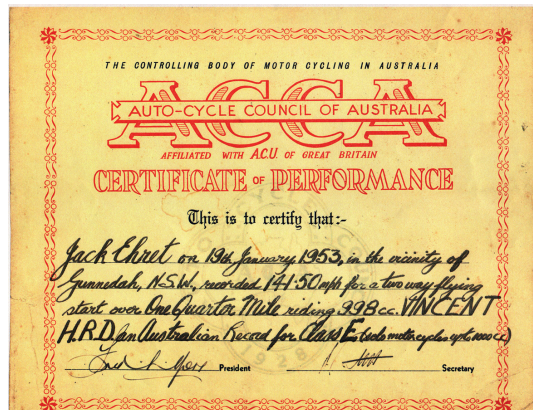 THE CONTROLLING BODY OF MOTOR CYCLING IN AUSTRALIA
ACCA
AUTO-CYCLE COUNCIL OF AUSTRALIA
AFFILIATED WITH A.C.U. OF GREAT BRITAIN
CERTIFICATE OF PERFORMANCE
This is to certify that:-
Jack Ehret on 19th January 1953, in the vicinity of
Gunnedah, N.S.W., recorded 141·50 mph for a two way flying
start over One Quarter Mile riding 998 cc. VINCENT
H.R.D. (an Australian Record for Class E solo motor cycles up to 1000 cc)
President
Secretary
1928